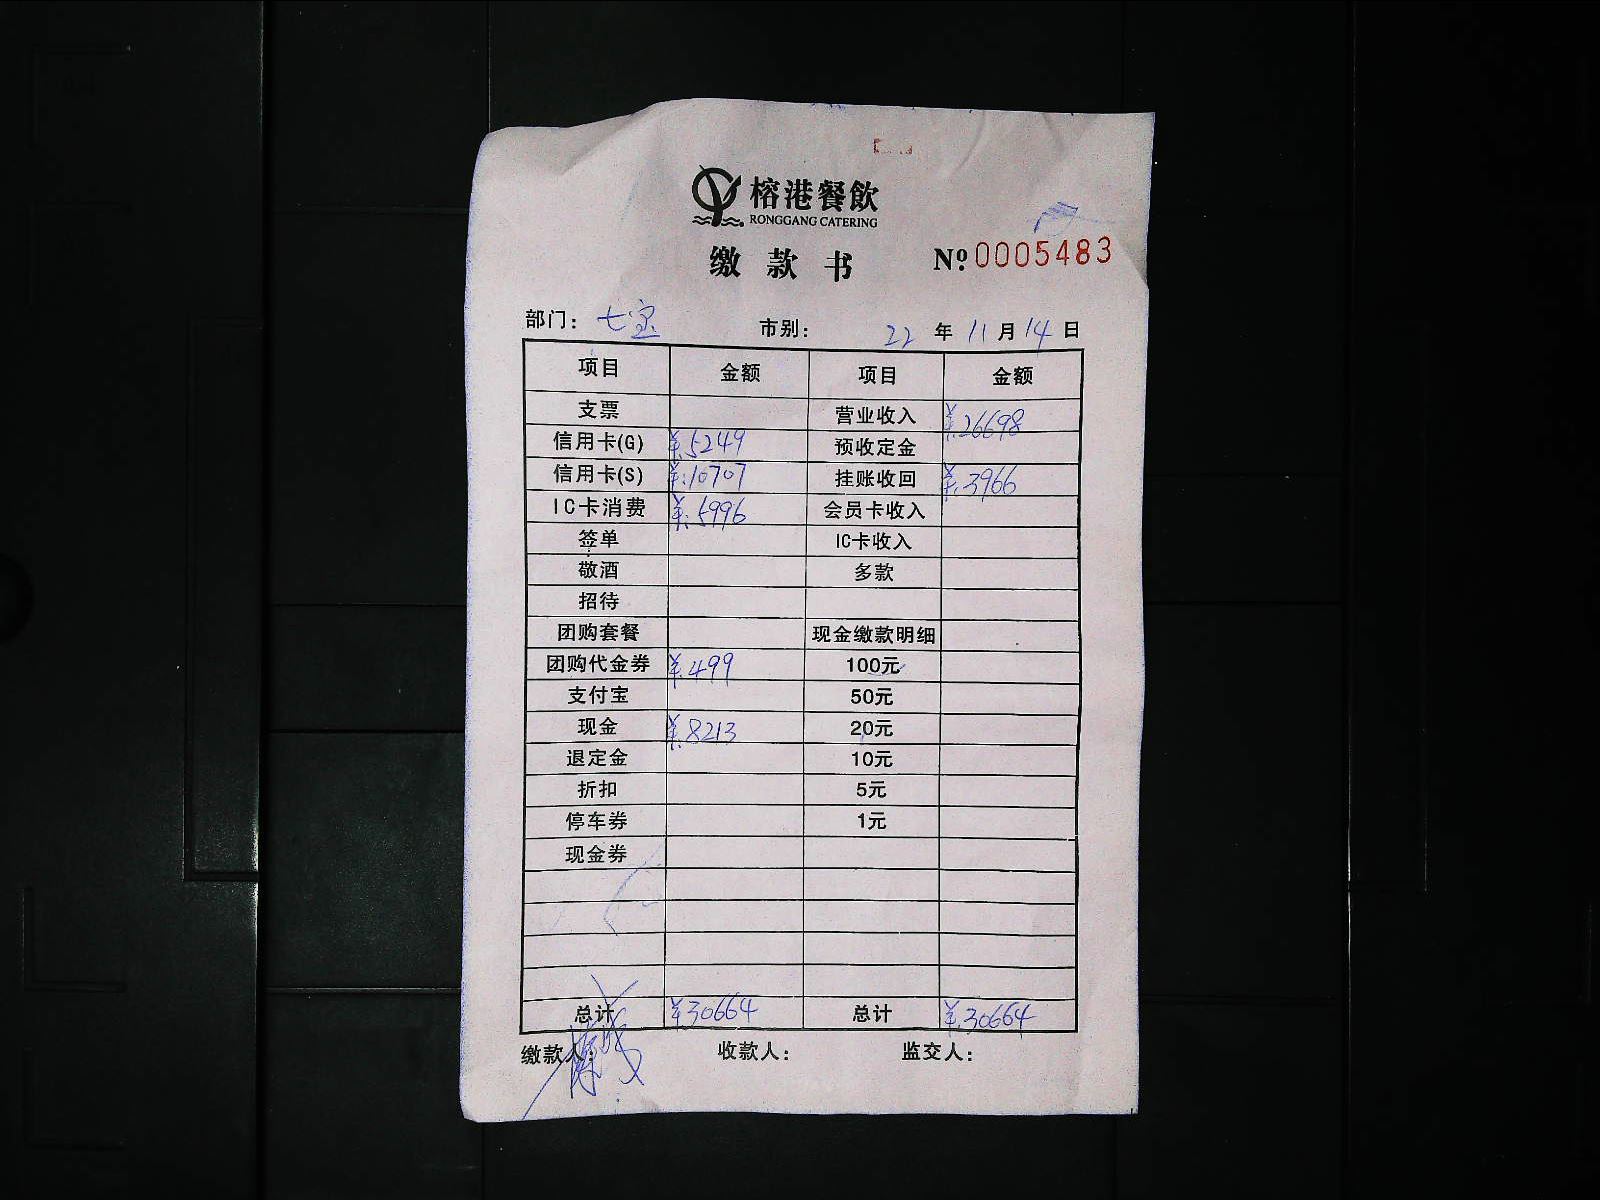 榕港餐飲
RONGGANG CATERING
缴款书 №0005483
部门： 七宝 市别： 22 年 11 月 14 日
项目 金额 项目 金额
支票 营业收入 ¥:26698
信用卡(G) ¥:5249 预收定金
信用卡(S) ¥:10707 挂账收回 ¥:3966
IC卡消费 ¥:5996 会员卡收入
签单 IC卡收入
敬酒 多款
招待
团购套餐 现金缴款明细
团购代金券 ¥:499 100元
支付宝 50元
现金 ¥:8213 20元
退定金 10元
折扣 5元
停车券 1元
现金券
总计 ¥30664 总计 ¥:30664
缴款人： 收款人： 监交人：